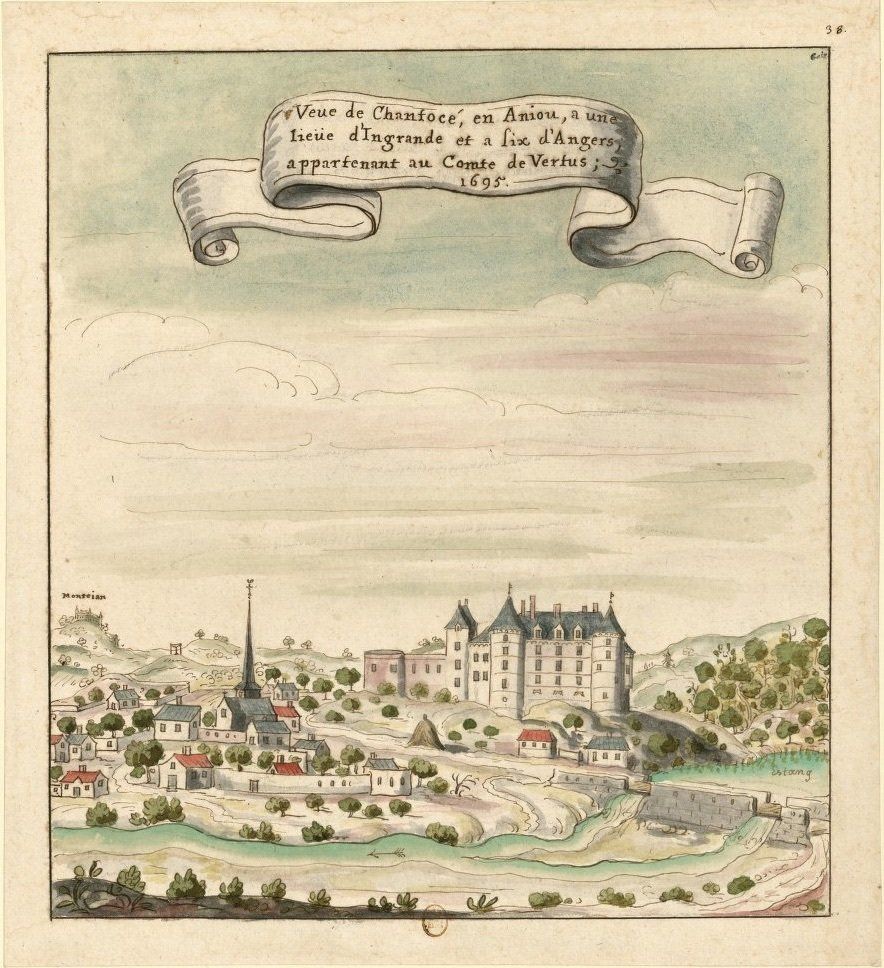 38.
Veue de Chantocé, en Aniou, a une
lieüe d'Ingrande et a six d'Angers,
appartenant au Comte de Vertus ;
1695.
Monteian
estang